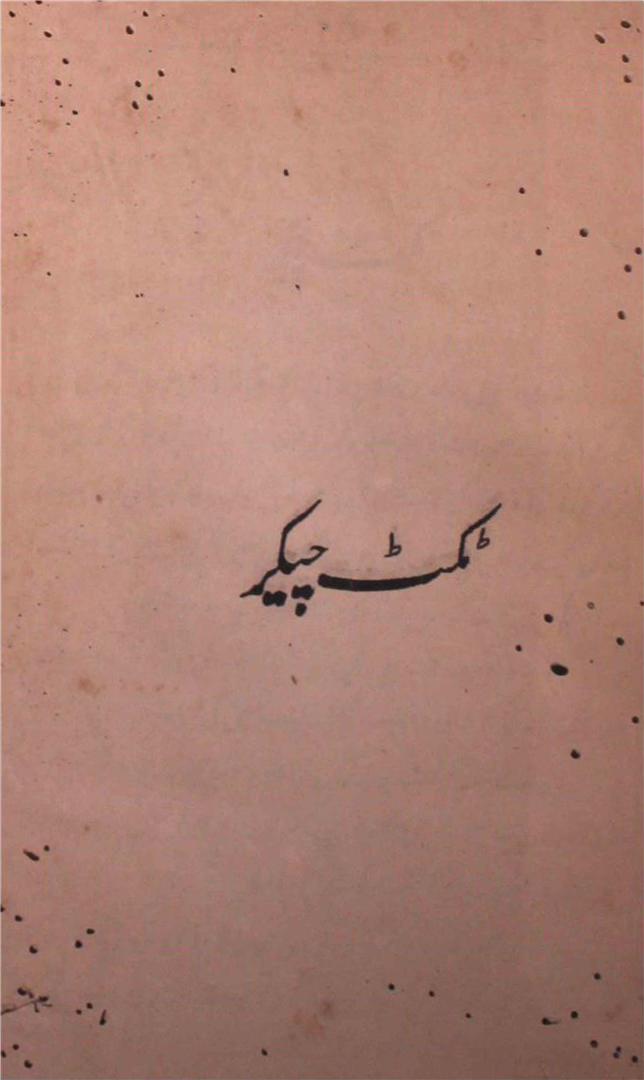 ٹکٹ چیکر